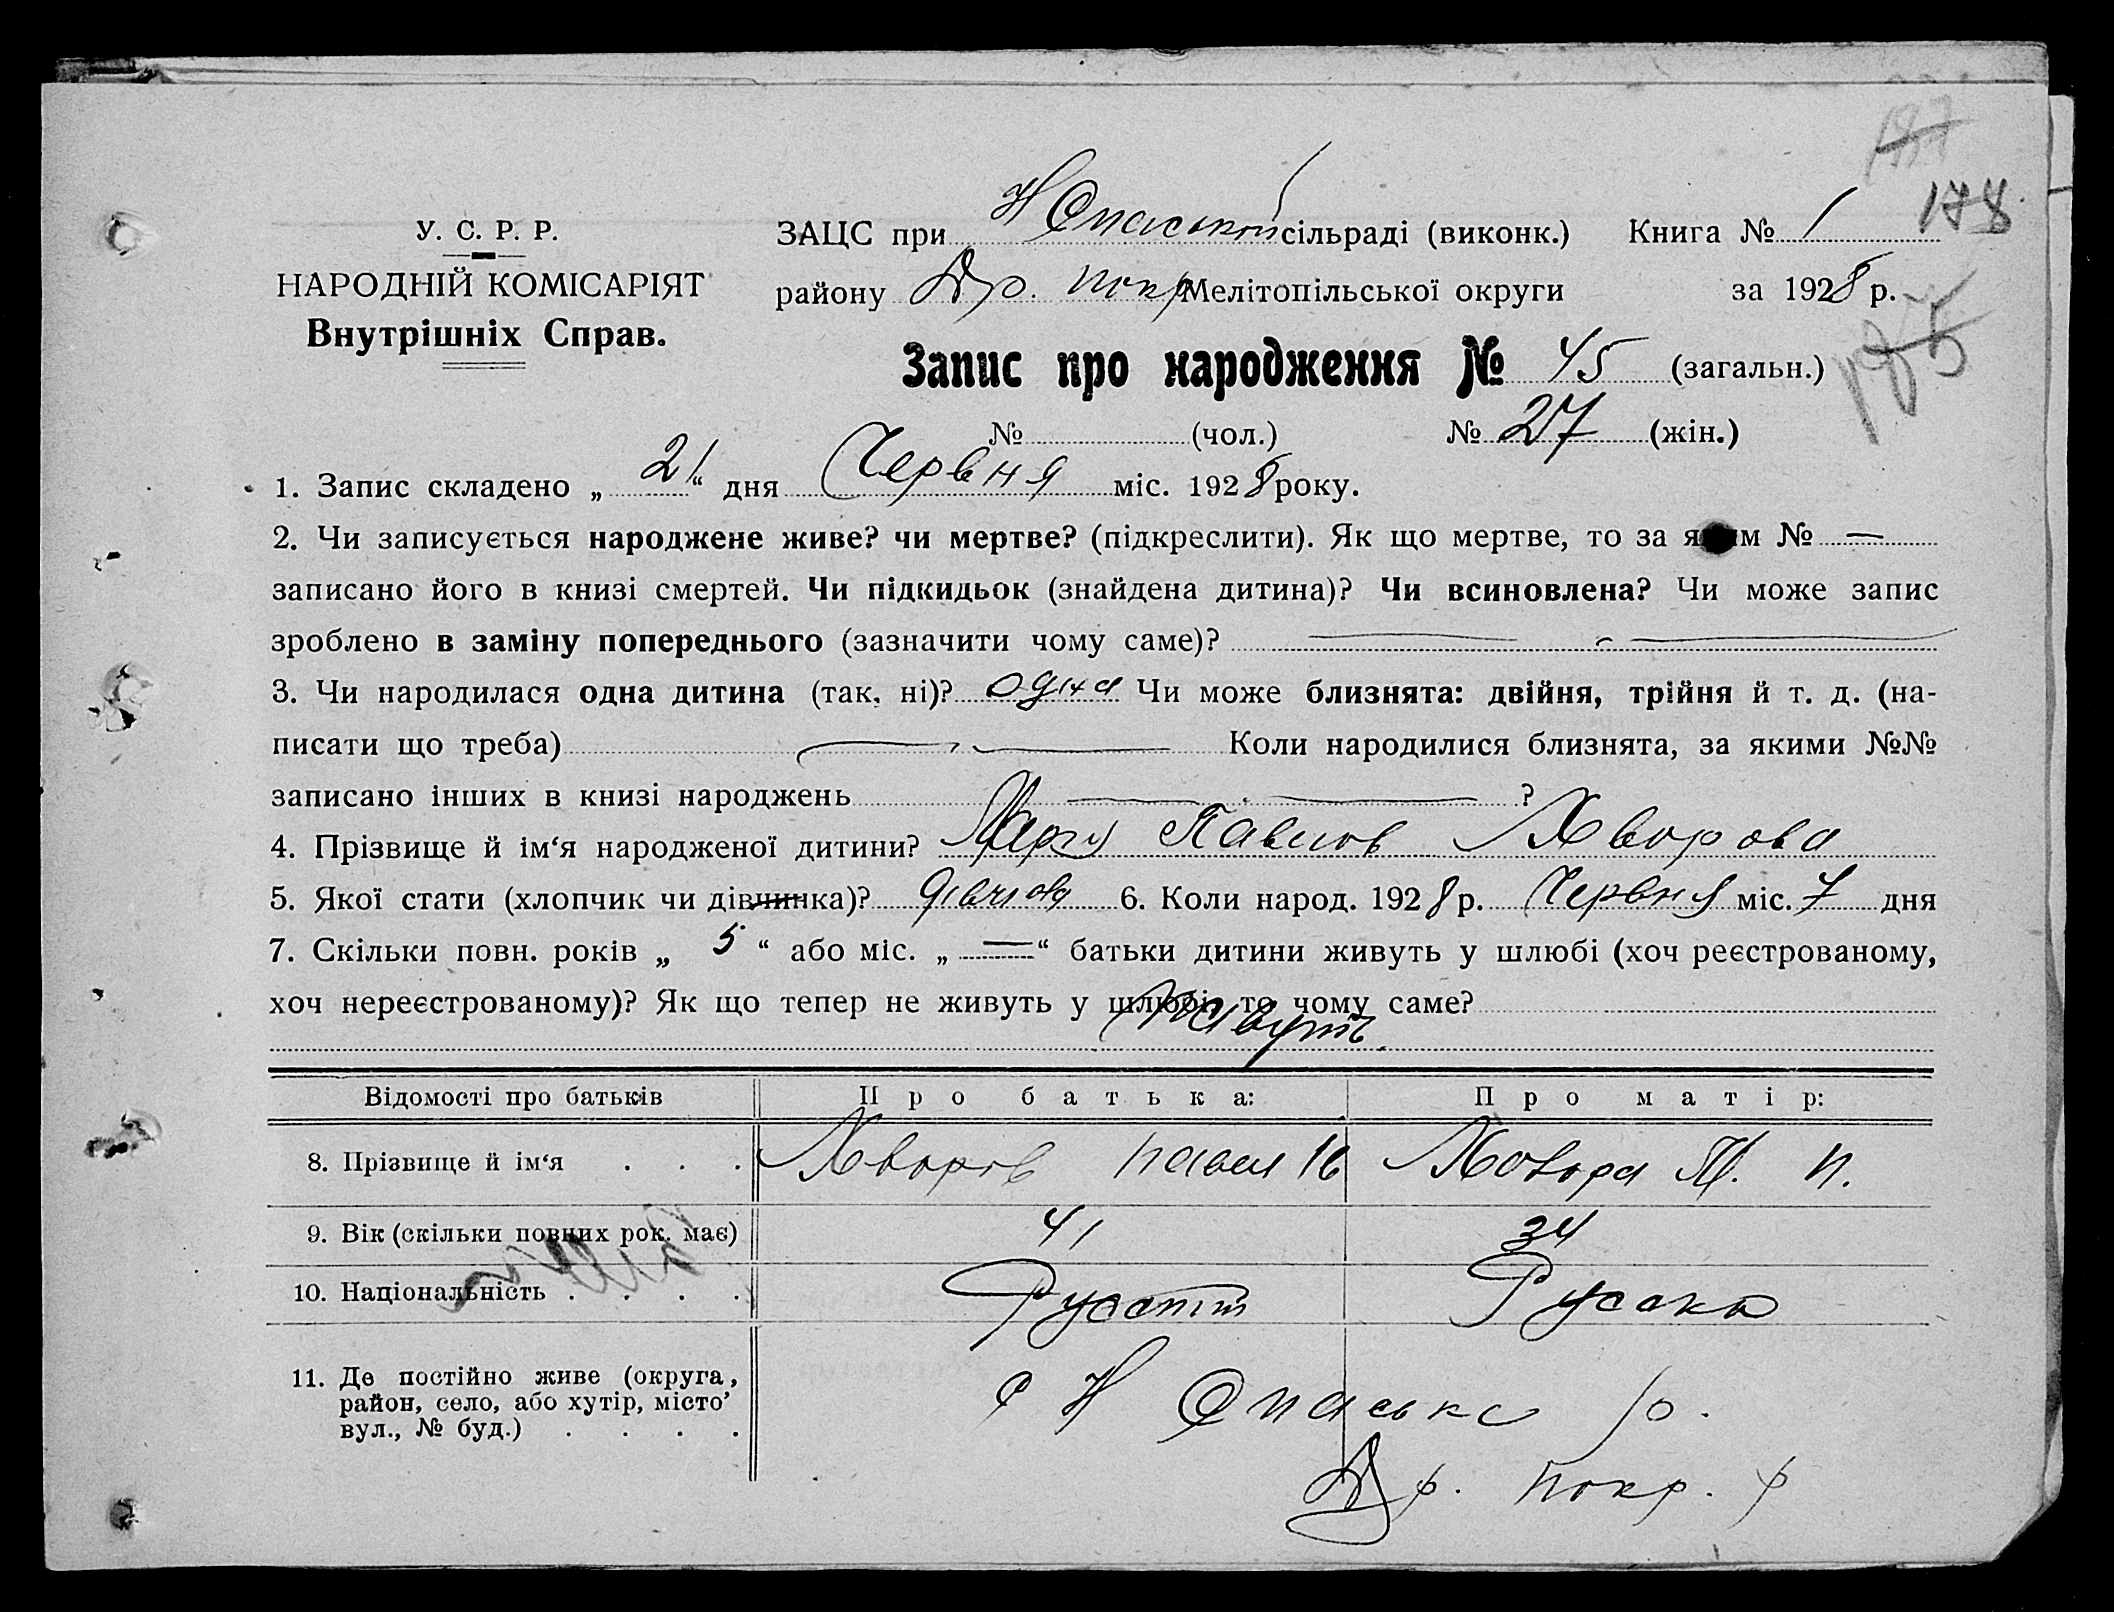 187
178
У. С. Р. Р.
НАРОДНІЙ КОМІСАРІЯТ
Внутрішніх Справ.
ЗАЦС при Н Спаській сільраді (виконк.) Книга № 1
району Др. покр Мелітопільської округи за 1928 р.
Запис про народження № 45 (загальн.)
№ (чол.) № 27 (жін.)
1. Запис складено „ 21 “ дня Червня міс. 1928 року.
2. Чи записується народжене живе? чи мертве? (підкреслити). Як що мертве, то за яким № —
записано його в книзі смертей. Чи підкидьок (знайдена дитина)? Чи всиновлена? Чи може запис
зроблено в заміну попереднього (зазначити чому саме)?
3. Чи народилася одна дитина (так, ні)? одна Чи може близнята: двійня, трійня й т. д. (на-
писати що треба) Коли народилися близнята, за якими №№
записано інших в книзі народжень ?
4. Прізвище й ім‘я народженої дитини? Павлов Хворова
5. Якої стати (хлопчик чи дівчинка)? 6. Коли народ. 1928 р. Червня міс. 7 дня
7. Скільки повн. років „ 5 “ або міс. „ — “ батьки дитини живуть у шлюбі (хоч реєстрованому,
хоч нереєстрованому)? Як що тепер не живуть у шлюбі, то чому саме?
Живуть.
Відомості про батьків Про батька: Про матір:
8. Прізвище й ім‘я . . . Хворов Павел М. П.
9. Вік (скільки повних рок. має) 41 34
10. Національність . . . . Руска
11. Де постійно живе (округа,
район, село, або хутір, місто’
вул., № буд.) . . . .
с Н Спаське
Др. покр. р